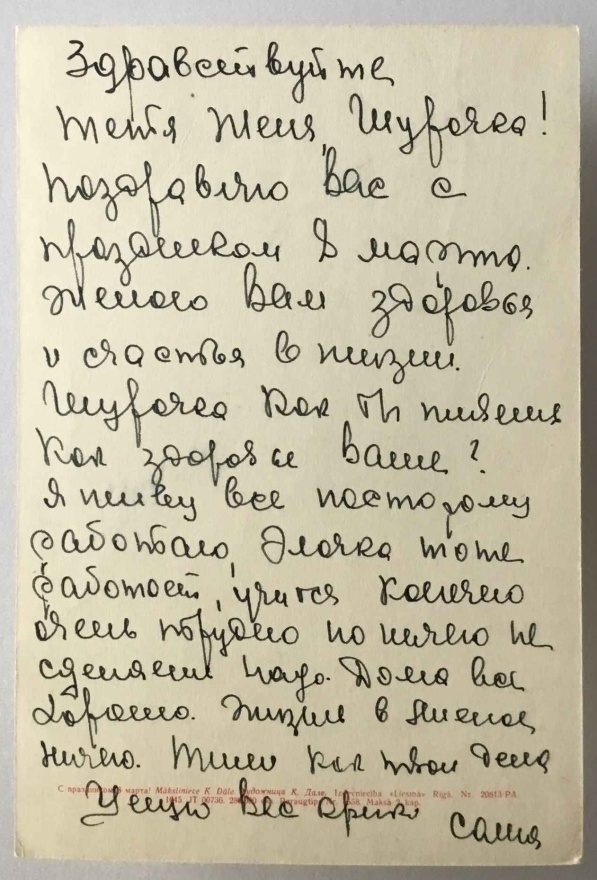 Здравствуйте
тетя Женя, Шурочка!
Поздравляю Вас с
праздником 8 марта.
Желаю Вам здоровья
и счастья в жизни.
Шурочка как ты живеш
Как здоровье ваше?
Я живу все постарому
работаю, Элочка тоже
работает, учится конечно
очень трудно но ничего не
сделаеш надо. Дома все
хорошо. в
ничего. как твои дела
С праздником 8 марта! Māksliniece K. Dāle Художница К. Дале. Izdevniecība «Liesma» Rīgā. Nr. 20813 PA
JT 00736. kap.
Целую Вас крепко
Саша